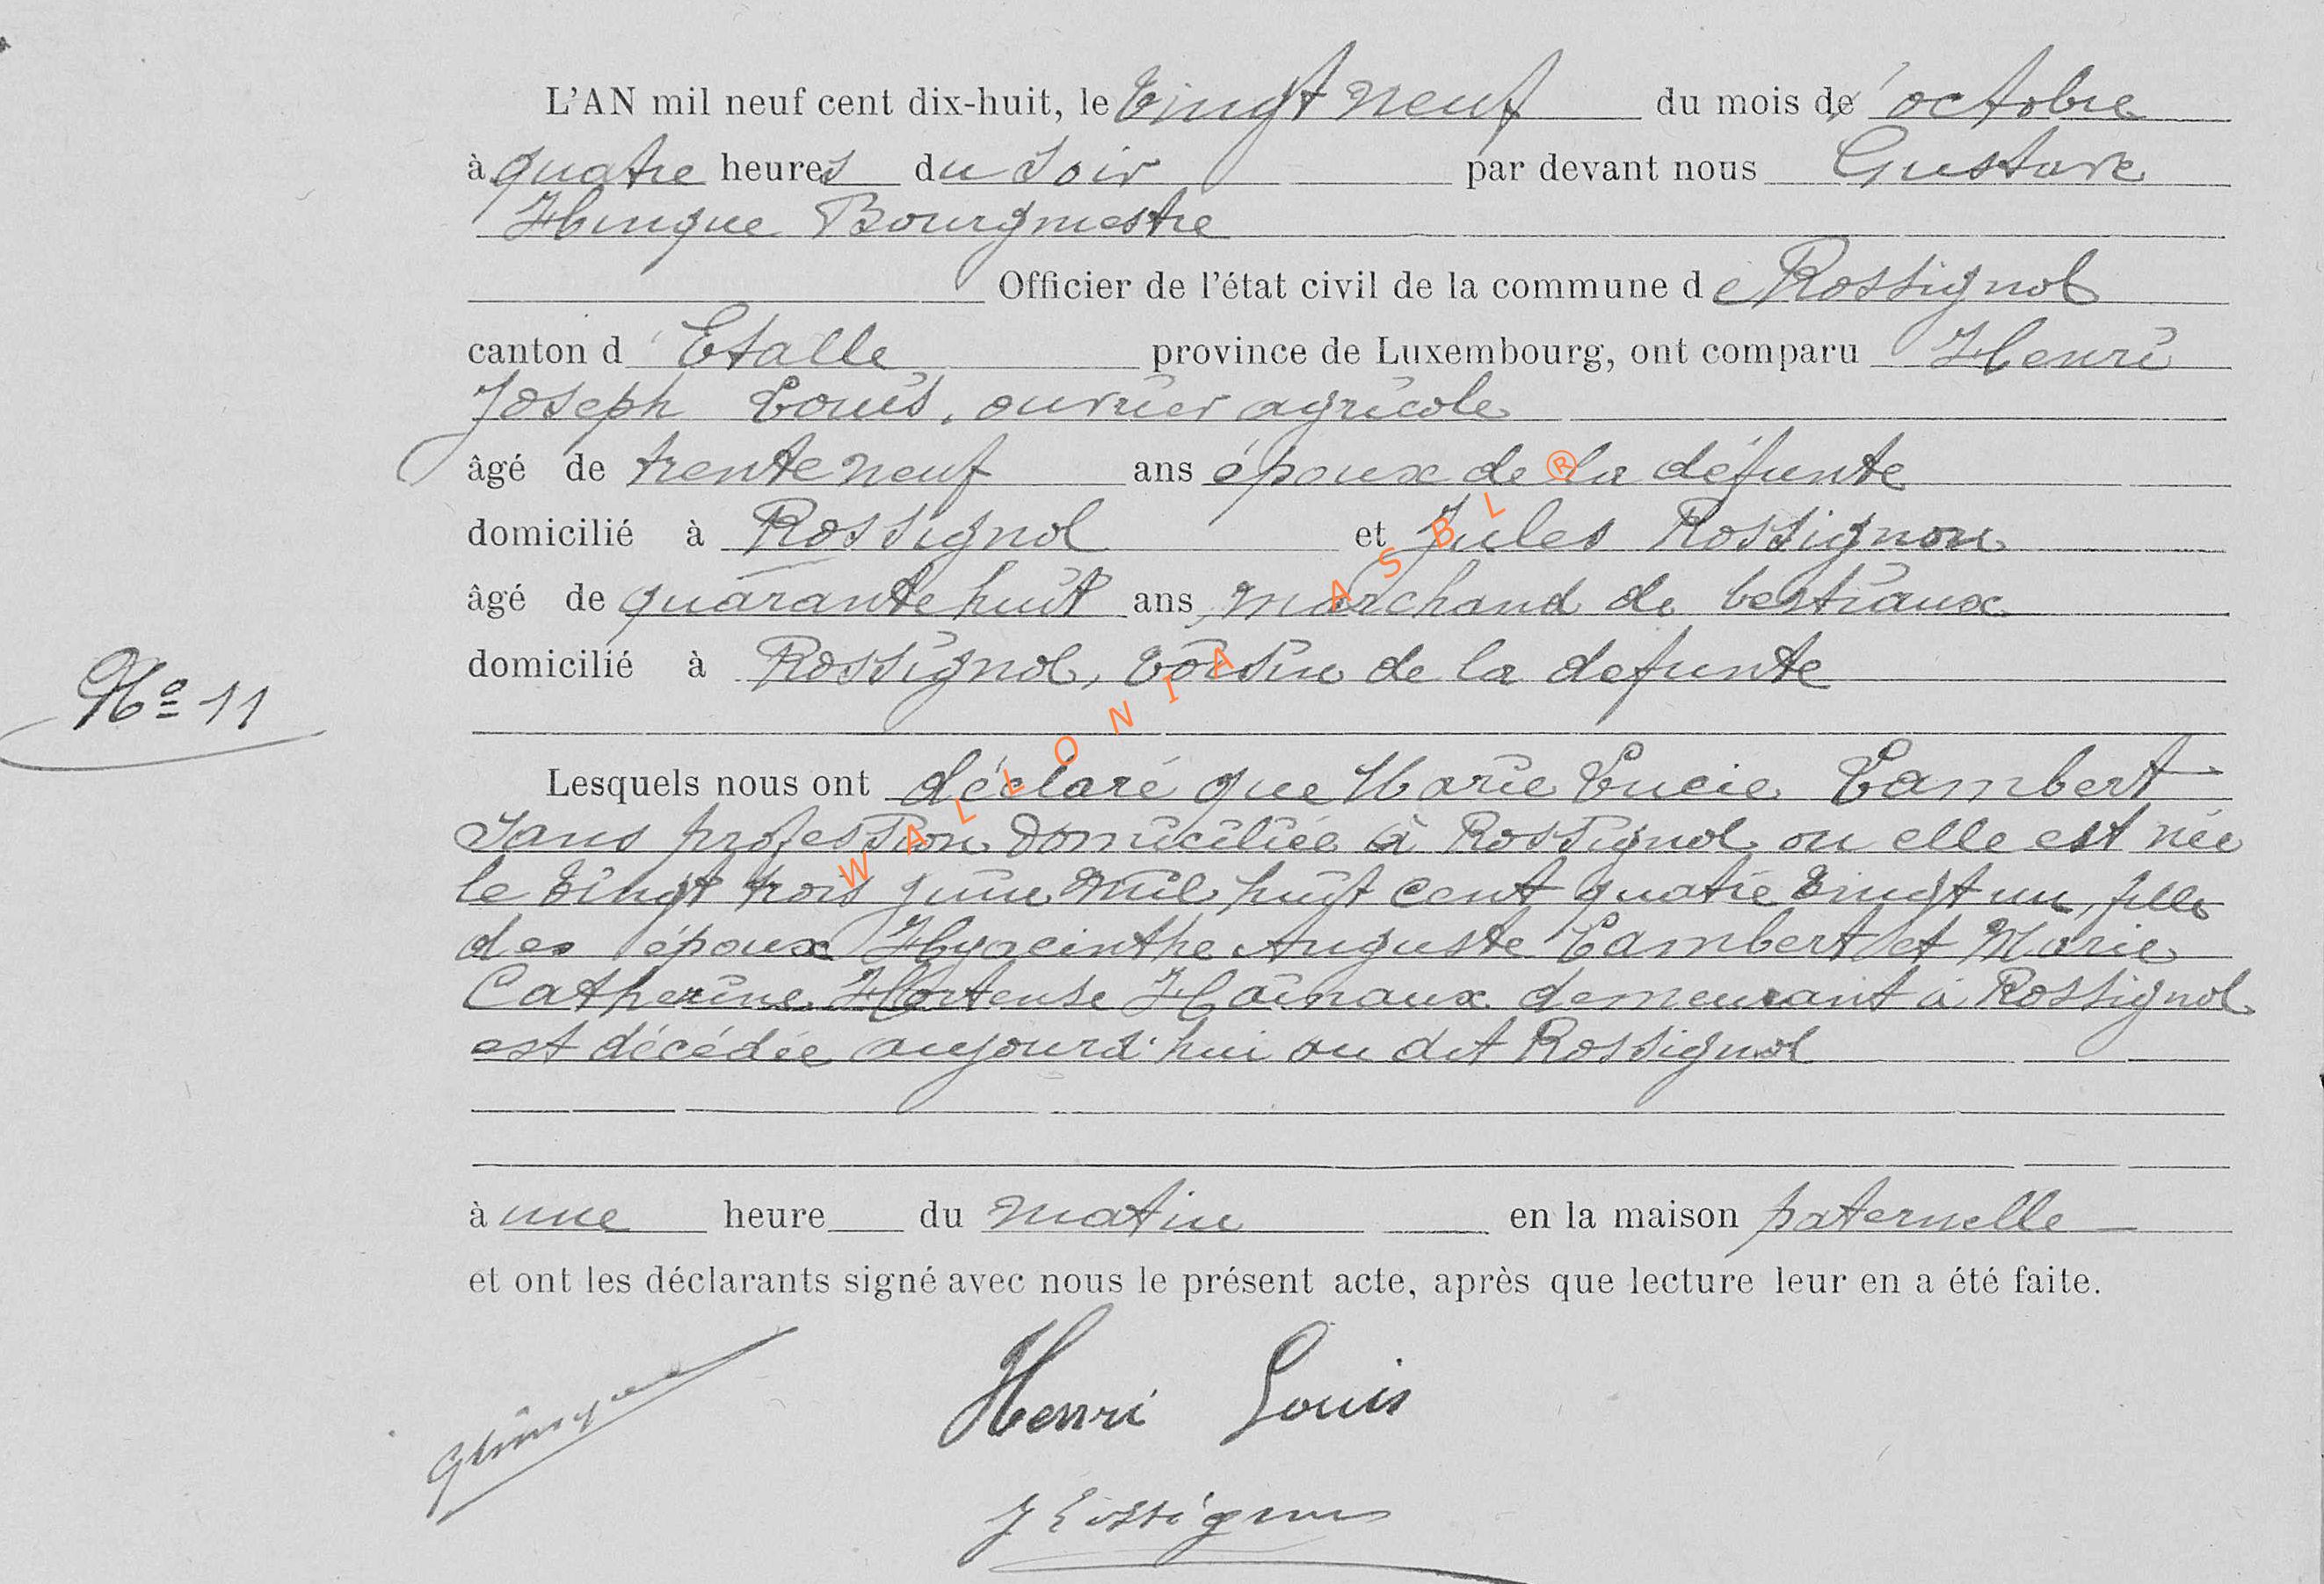 L'AN mil neuf cent dix-huit, le vingt neuf du mois d' octobre
à quatre heures du soir par devant nous Gustave
Hinque Bourgmestre
Officier de l'état civil de la commune de Rossignol
canton d' Etalle province de Luxembourg, ont comparu Henri
Joseph Louis, ouvrier agricole
âgé de trente neuf ans époux de la défunte
domicilié à Rossignol et Jules Rossignon
âgé de quarante huit ans, marchand de bestiaux
domicilié à Rossignol, voisin de la defunte
No 11
Lesquels nous ont déclaré que Marie Lucie Lambert
sans profession domiciliée à Rossignol ou elle est née
le vingt trois juin mil huit cent quatre vingt un, fille
des époux Hyacinthe Auguste Lambert et Marie
Catherine Hortense Hainaux demeurant à Rossignol
est décédée aujourd'hui au dit Rossignol
à une heure du matin en la maison paternelle
et ont les déclarants signé avec nous le présent acte, après que lecture leur en a été faite.
Henri Louis
J Rossignon
WALLONIA ASBL ®